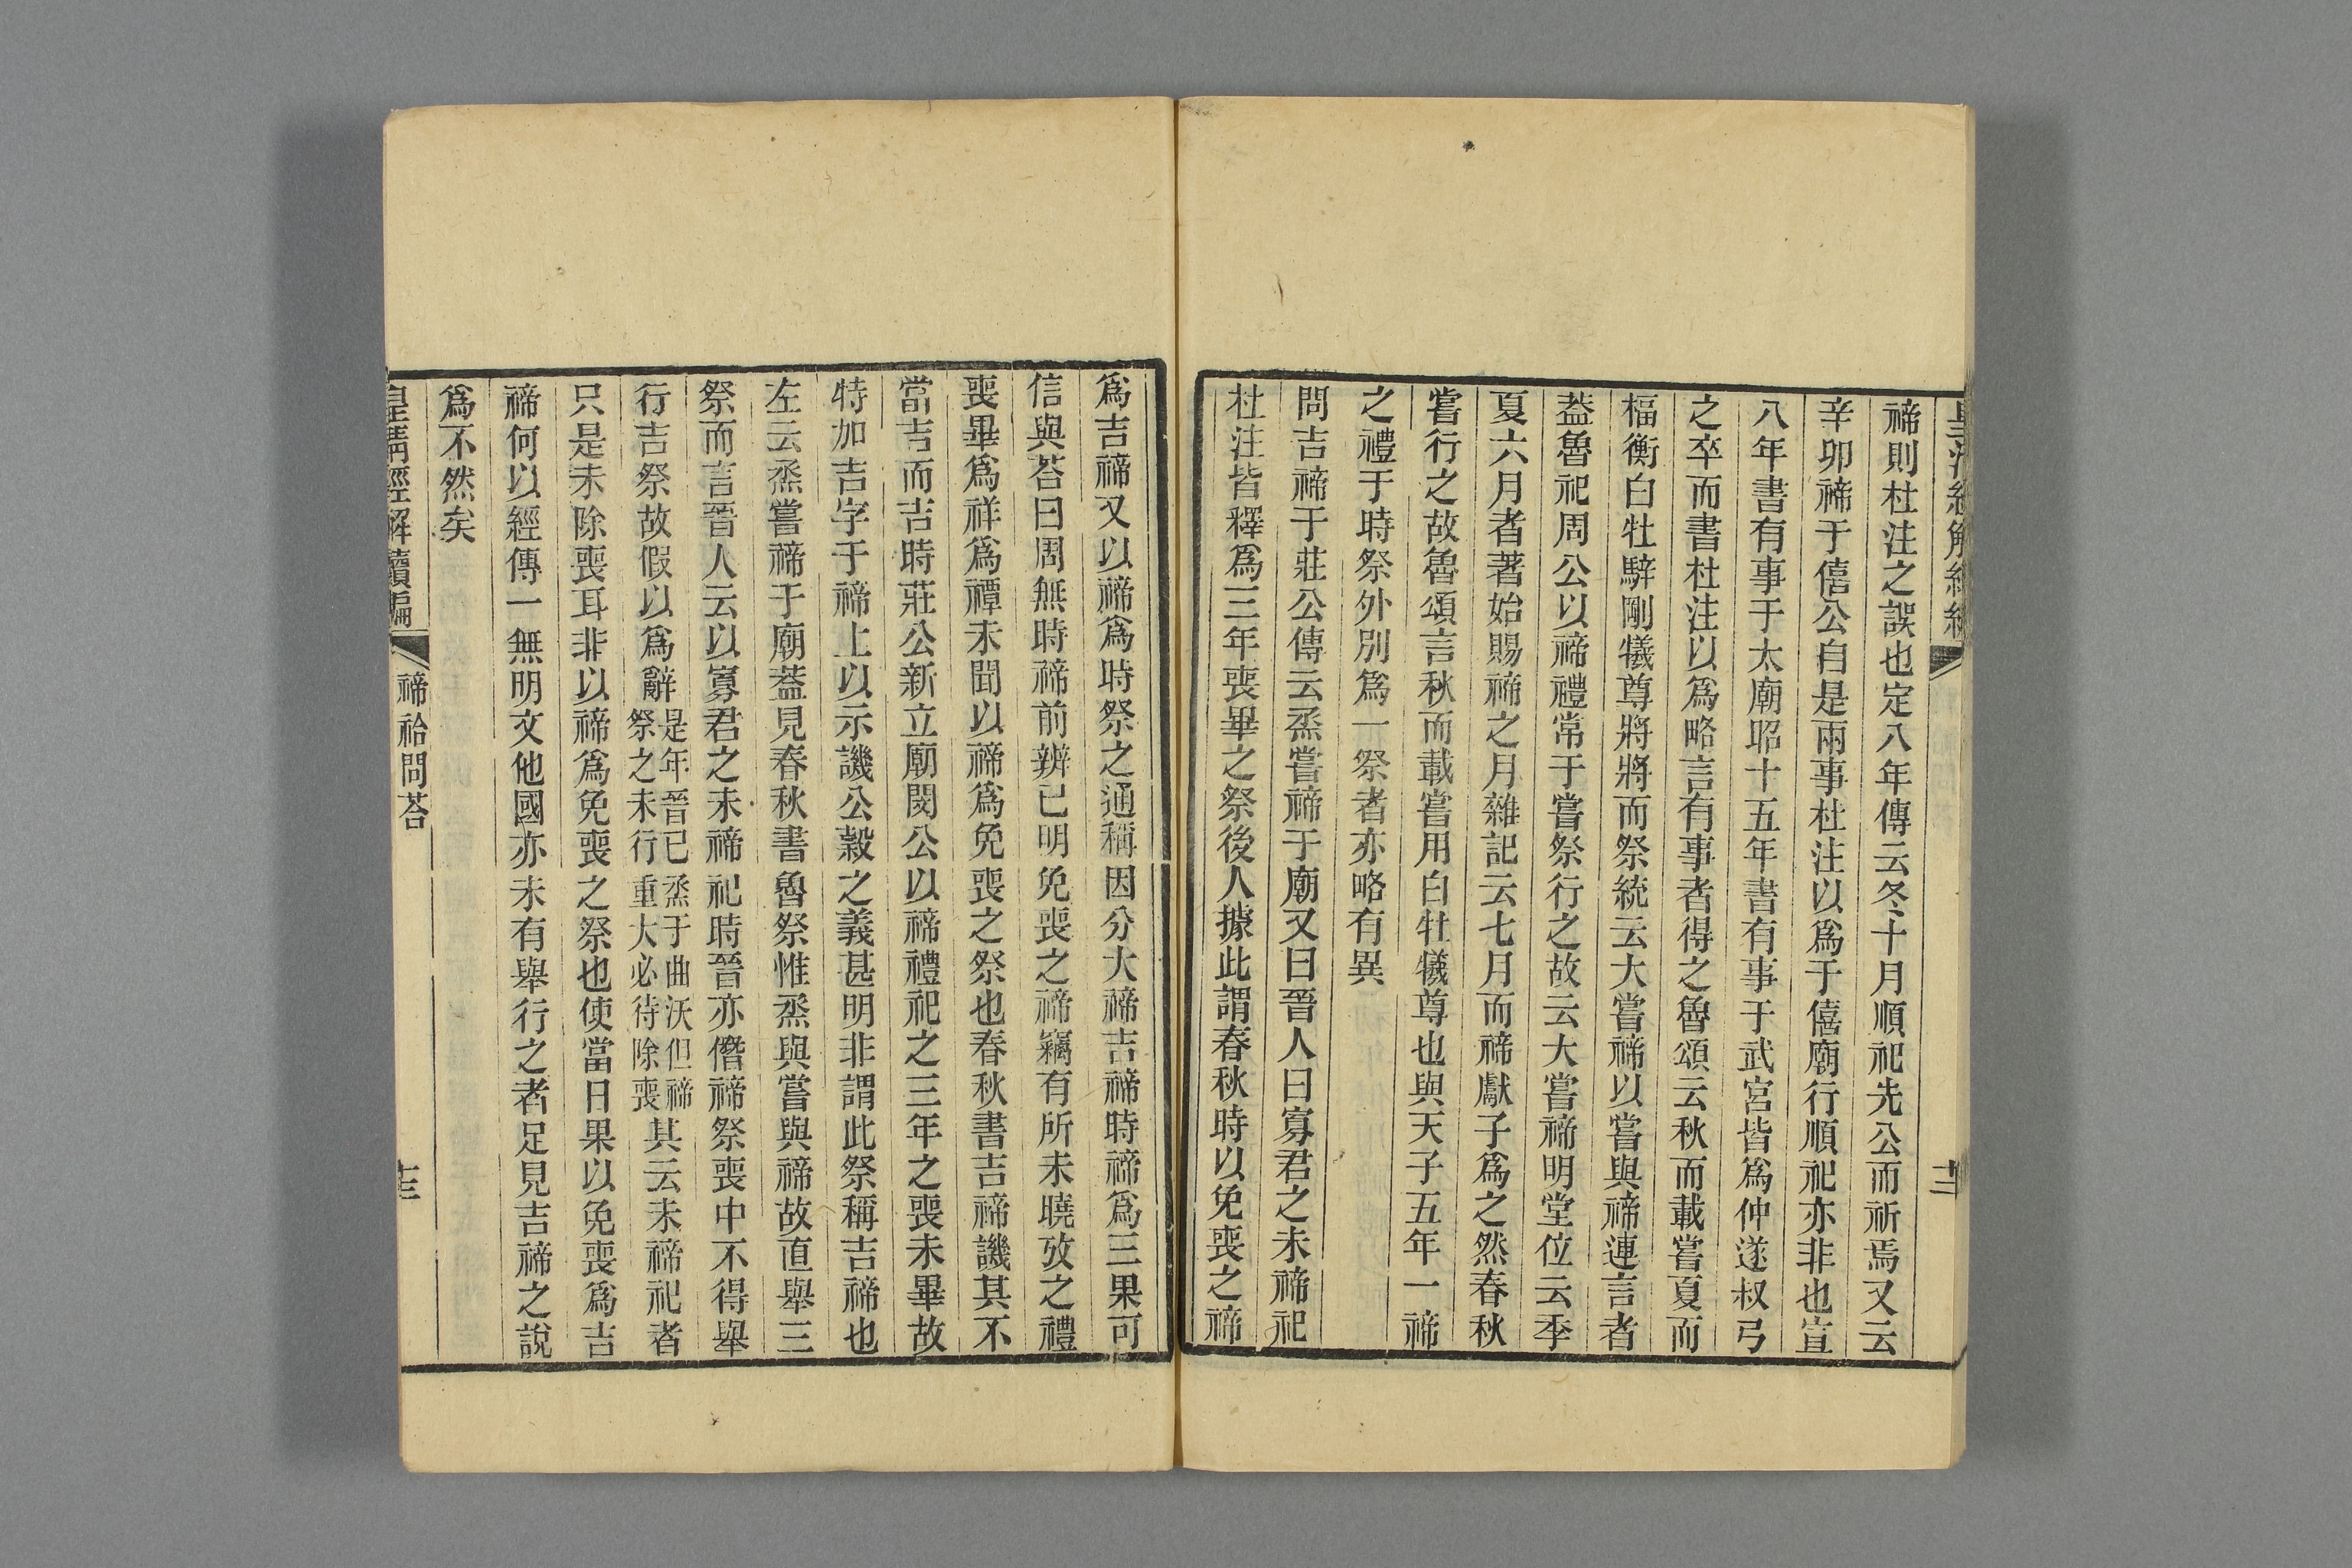 禘則杜注之誤也定八年傳云冬十月順祀先公而祈焉又云
辛卯禘于僖公自是兩事杜注以爲于僖廟行順祀亦非也宣
八年書有事于太廟昭十五年書有事于武宮皆爲仲遂叔弓
之卒而書杜注以爲略言有事者得之魯頌云秋而載嘗夏而
楅衡白牡騂剛犧尊將將而祭統云大嘗禘以嘗與禘連言者
葢魯祀周公以禘禮常于嘗祭行之故云大嘗禘明堂位云季
夏六月者著始賜禘之月雜記云七月而禘獻子爲之然春秋
嘗行之故魯頌言秋而載嘗用白牡犧尊也與天子五年一禘
之禮于時祭外別爲一祭者亦略有異
問吉禘于莊公傳云烝嘗禘于廟又曰晉人曰寡君之未禘祀
杜注皆釋爲三年喪畢之祭後人據此謂春秋時以免喪之禘
爲吉禘又以禘爲時祭之通稱因分大禘吉禘時禘爲三果可
信與荅曰周無時禘前辨已明免喪之禘竊有所未曉攷之禮
喪畢爲祥爲禫未聞以禘爲免喪之祭也春秋書吉禘譏其不
當吉而吉時莊公新立廟閔公以禘禮祀之三年之喪未畢故
特加吉字于禘上以示譏公穀之義甚明非謂此祭稱吉禘也
左云烝嘗禘于廟葢見春秋書魯祭惟烝與嘗與禘故直舉三
祭而言晉人云以寡君之未禘祀時晉亦僭禘祭喪中不得舉
行吉祭故假以爲辭是年晉已烝于曲沃但禘祭之未行重大必待除喪其云未禘祀者
只是未除喪耳非以禘爲免喪之祭也使當日果以免喪爲吉
禘何以經傳一無明文他國亦未有舉行之者足見吉禘之說
爲不然矣
皇清經解續編
禘祫問荅
十三